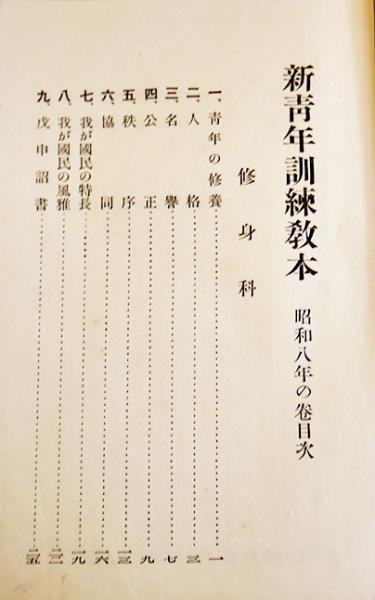 新靑年訓練敎本 昭和八年の卷目次
修身科
一、靑年の修養…………一
二、人格…………三
三、名譽…………七
四、公正…………九
五、秩序…………一三
六、協同…………一六
七、我が國民の特長…………一九
八、我が國民の風雅…………二二
九、戊申詔書…………二五